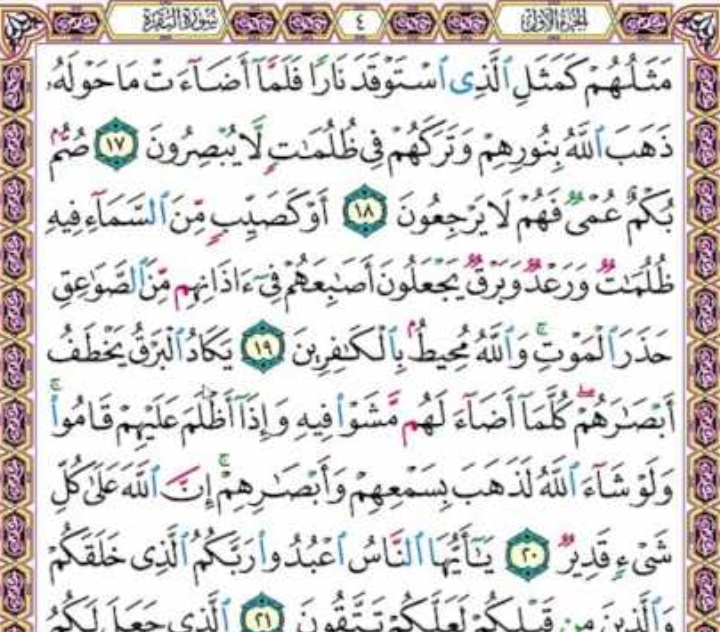 الجزء الأول ٤ سورة البقرة
مَثَلُهُمْ كَمَثَلِ ٱلَّذِى ٱسْتَوْقَدَ نَارًا فَلَمَّآ أَضَآءَتْ مَا حَوْلَهُۥ
ذَهَبَ ٱللَّهُ بِنُورِهِمْ وَتَرَكَهُمْ فِى ظُلُمَٰتٍ لَّا يُبْصِرُونَ ١٧ صُمٌّۢ
بُكْمٌ عُمْىٌ فَهُمْ لَا يَرْجِعُونَ ١٨ أَوْ كَصَيِّبٍ مِّنَ ٱلسَّمَآءِ فِيهِ
ظُلُمَٰتٌ وَرَعْدٌ وَبَرْقٌ يَجْعَلُونَ أَصَٰبِعَهُمْ فِىٓ ءَاذَانِهِم مِّنَ ٱلصَّوَٰعِقِ
حَذَرَ ٱلْمَوْتِ ۚ وَٱللَّهُ مُحِيطٌۢ بِٱلْكَٰفِرِينَ ١٩ يَكَادُ ٱلْبَرْقُ يَخْطَفُ
أَبْصَٰرَهُمْ ۖ كُلَّمَآ أَضَآءَ لَهُم مَّشَوْا۟ فِيهِ وَإِذَآ أَظْلَمَ عَلَيْهِمْ قَامُوا۟ ۚ
وَلَوْ شَآءَ ٱللَّهُ لَذَهَبَ بِسَمْعِهِمْ وَأَبْصَٰرِهِمْ ۚ إِنَّ ٱللَّهَ عَلَىٰ كُلِّ
شَىْءٍ قَدِيرٌ ٢٠ يَٰٓأَيُّهَا ٱلنَّاسُ ٱعْبُدُوا۟ رَبَّكُمُ ٱلَّذِى خَلَقَكُمْ
وَٱلَّذِينَ مِن قَبْلِكُمْ لَعَلَّكُمْ تَتَّقُونَ ٢١ ٱلَّذِى جَعَلَ لَكُمُ